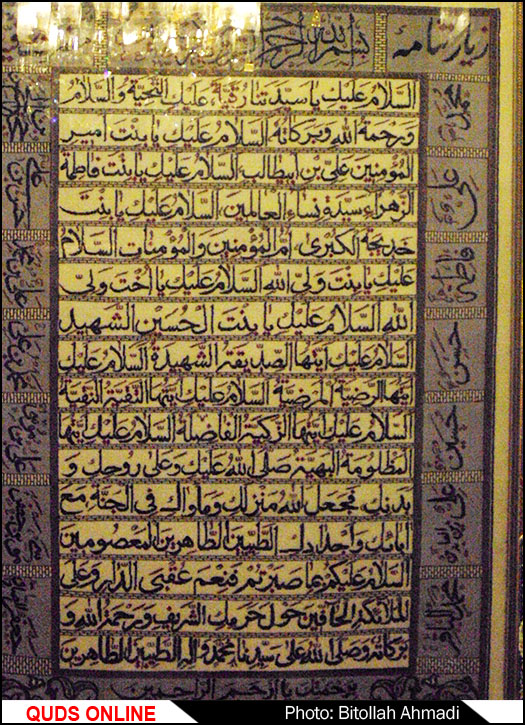 زیارتنامه
بسم الله الرحمن الرحیم
السلام علیك یا سیدتنا رقیة، علیك التحیة والسلام
ورحمة الله وبركاته السلام علیك یا بنت امیر
المؤمنین علی بن ابیطالب السلام علیك یا بنت فاطمة
الزهراء سیدة نساء العالمین، السلام علیك یا بنت
خدیجة الكبری، ام المؤمنین والمؤمنات السلام
علیك یا بنت ولی الله السلام علیك یا اخت ولی
الله السلام علیك یا بنت الحسین الشهید
السلام علیك ایتها الصدیقة الشهیدة السلام علیك
ایتها الرضیة المرضیة السلام علیك ایتها التقیة النقیة
السلام علیك ایتها الزكیة الفاضلة السلام علیك ایتها
المظلومة البهیة صلی الله علیك وعلی روحك و
بدنك، فجعل الله منزلك وماواك فی الجنة مع
آبائك واجدادك الطیبین الطاهرین المعصومین
السلام علیكم بما صبرتم فنعم عقبی الدار وعلی
الملائكة الحافین حول حرمك الشریف ورحمة الله و
بركاته وصلی الله علی سیدنا محمد وآله الطیبین الطاهرین
برحمتك یا ارحم الراحمین
محمد
علی
فاطمه
حسن
حسین
محمد الباقر
QUDS ONLINE
Photo: Bitollah Ahmadi